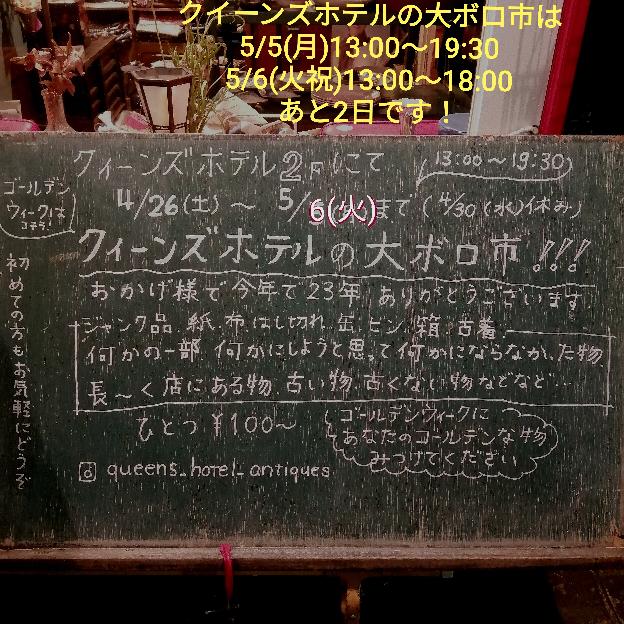 クイーンズホテルの大ボロ市は
5/5(月)13:00〜19:30
5/6(火祝)13:00〜18:00
あと2日です！
クィーンズホテル2Fにて
13:00〜19:30
ゴールデン
ウィークは
コチラ!
4/26(土)〜5/6(火)まで(4/30(水)休み)
クィーンズホテルの大ボロ市!!!
おかげ様で今年で23年 ありがとうございます
ジャンク品、紙、布はし切れ、缶、ビン、箱、古着
何かの一部、何かにしようと思って何かにならなかった物
長〜く店にある物、古い物、古くない物などなど…
ひとつ¥100〜
ゴールデンウィークに
あなたのゴールデンな物
みつけてください
queens_hotel_antiques
初めての方もお気軽にどうぞ